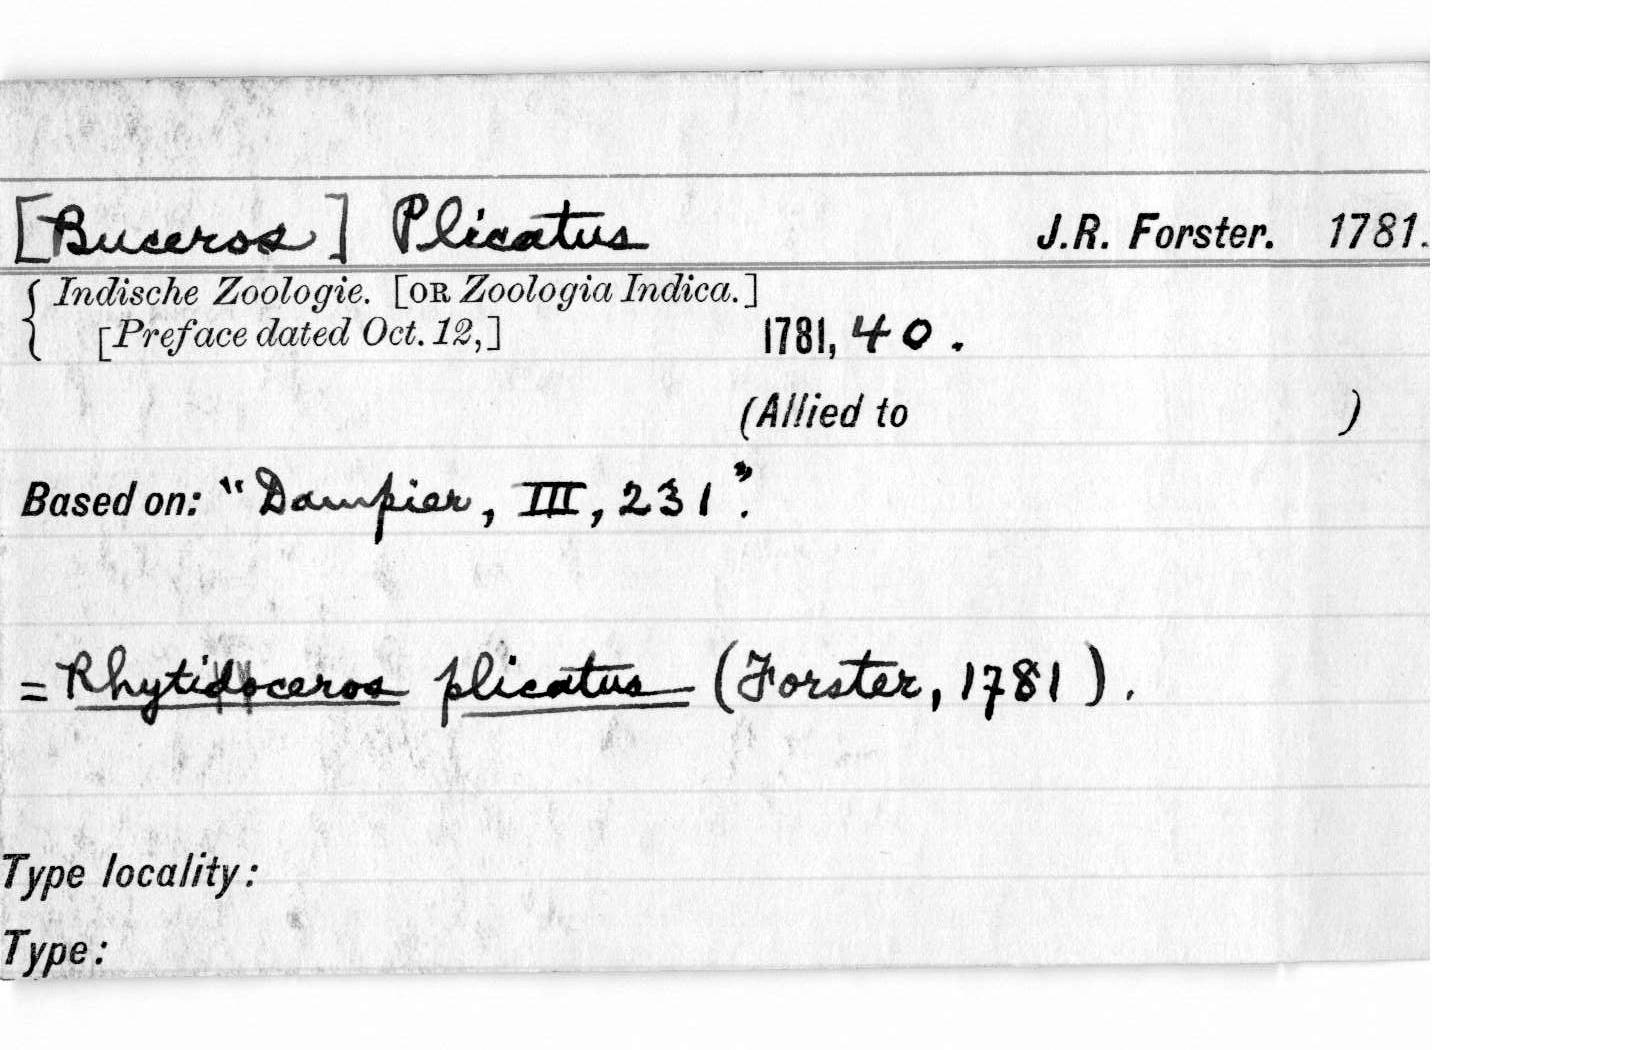 [Buceros] Plicatus J.R. Forster. 1781.
{ Indische Zoologie. [OR Zoologia Indica.]
[Preface dated Oct. 12,] 1781, 40.
(Allied to )
Based on: "Dampier, III, 231".
= Rhytidoceros plicatus (Forster, 1781).
Type locality:
Type: